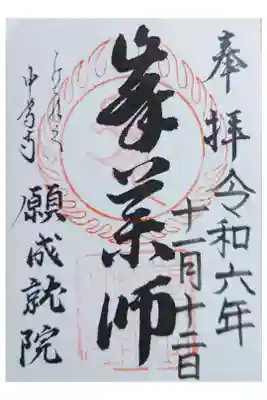 奉拝
令和六年
十一月十二日
峯薬師
中尊寺
願成就院